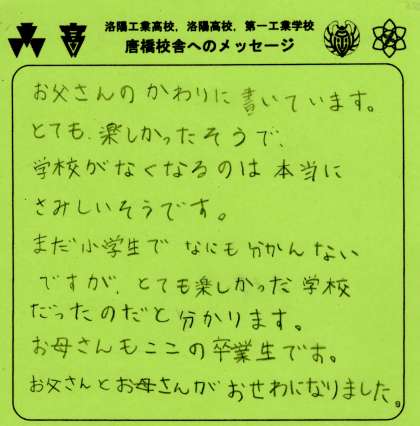 洛陽工業高校，洛陽高校，第一工業学校
唐橋校舎へのメッセージ
お父さんのかわりに書いています。
とても、楽しかったそうで、
学校がなくなるのは本当に
さみしいそうです。
まだ小学生でなにも分かんない
ですが、とても楽しかった学校
だったのだと分かります。
お母さんもここの卒業生です。
お父さんとお母さんがおせわになりました
9